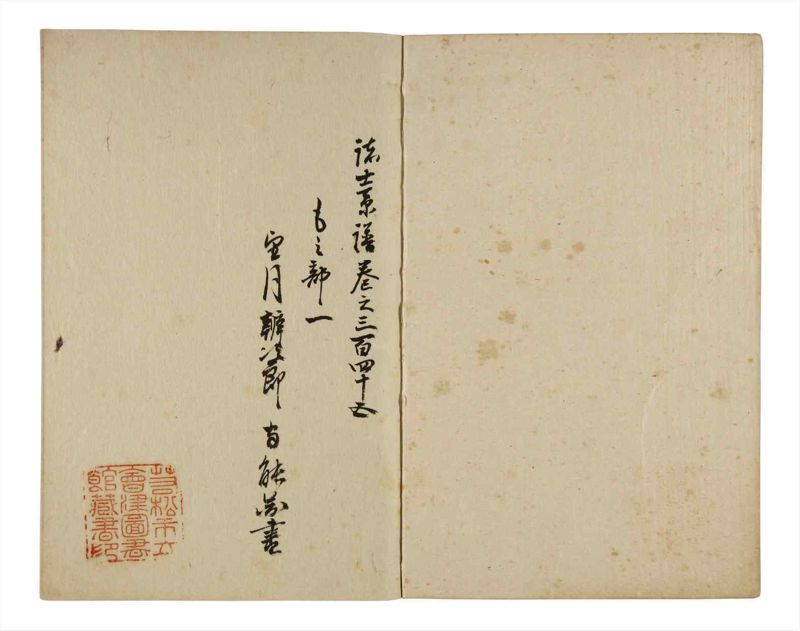 諸士系譜巻之三百四十五
もノ部一
望月辨次郎 當能
若松市立
會津圖書
館藏書印